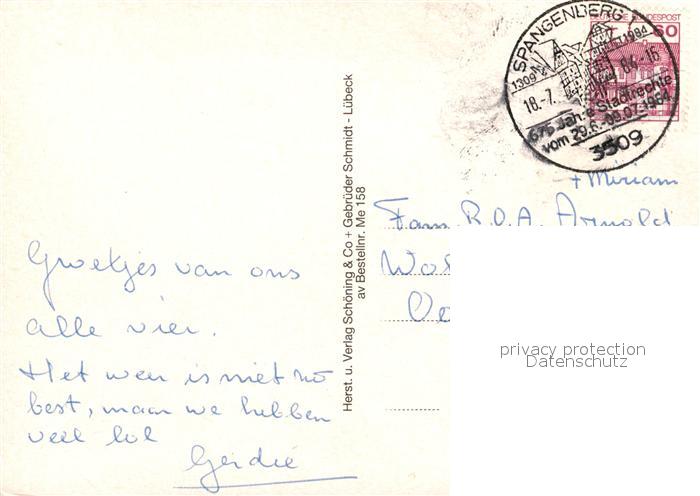 Groetjes van ons
alle vier.
Het weer is niet zo
best, maar we hebben
veel lol
Gerdie
Herst. u. Verlag Schöning & Co + Gebrüder Schmidt - Lübeck
av Bestellnr. Me 158
DEUTSCHE BUNDESPOST
60
SPANGENBERG
1309 1984
18.-7. 84-16
675 Jahre Stadtrechte
vom 29.6.-09.07.1984
3509
+ Miriam
Fam. R.O.A. Arnold
privacy protection
Datenschutz